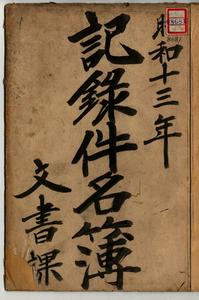 昭和十三年
記録件名簿
文書課